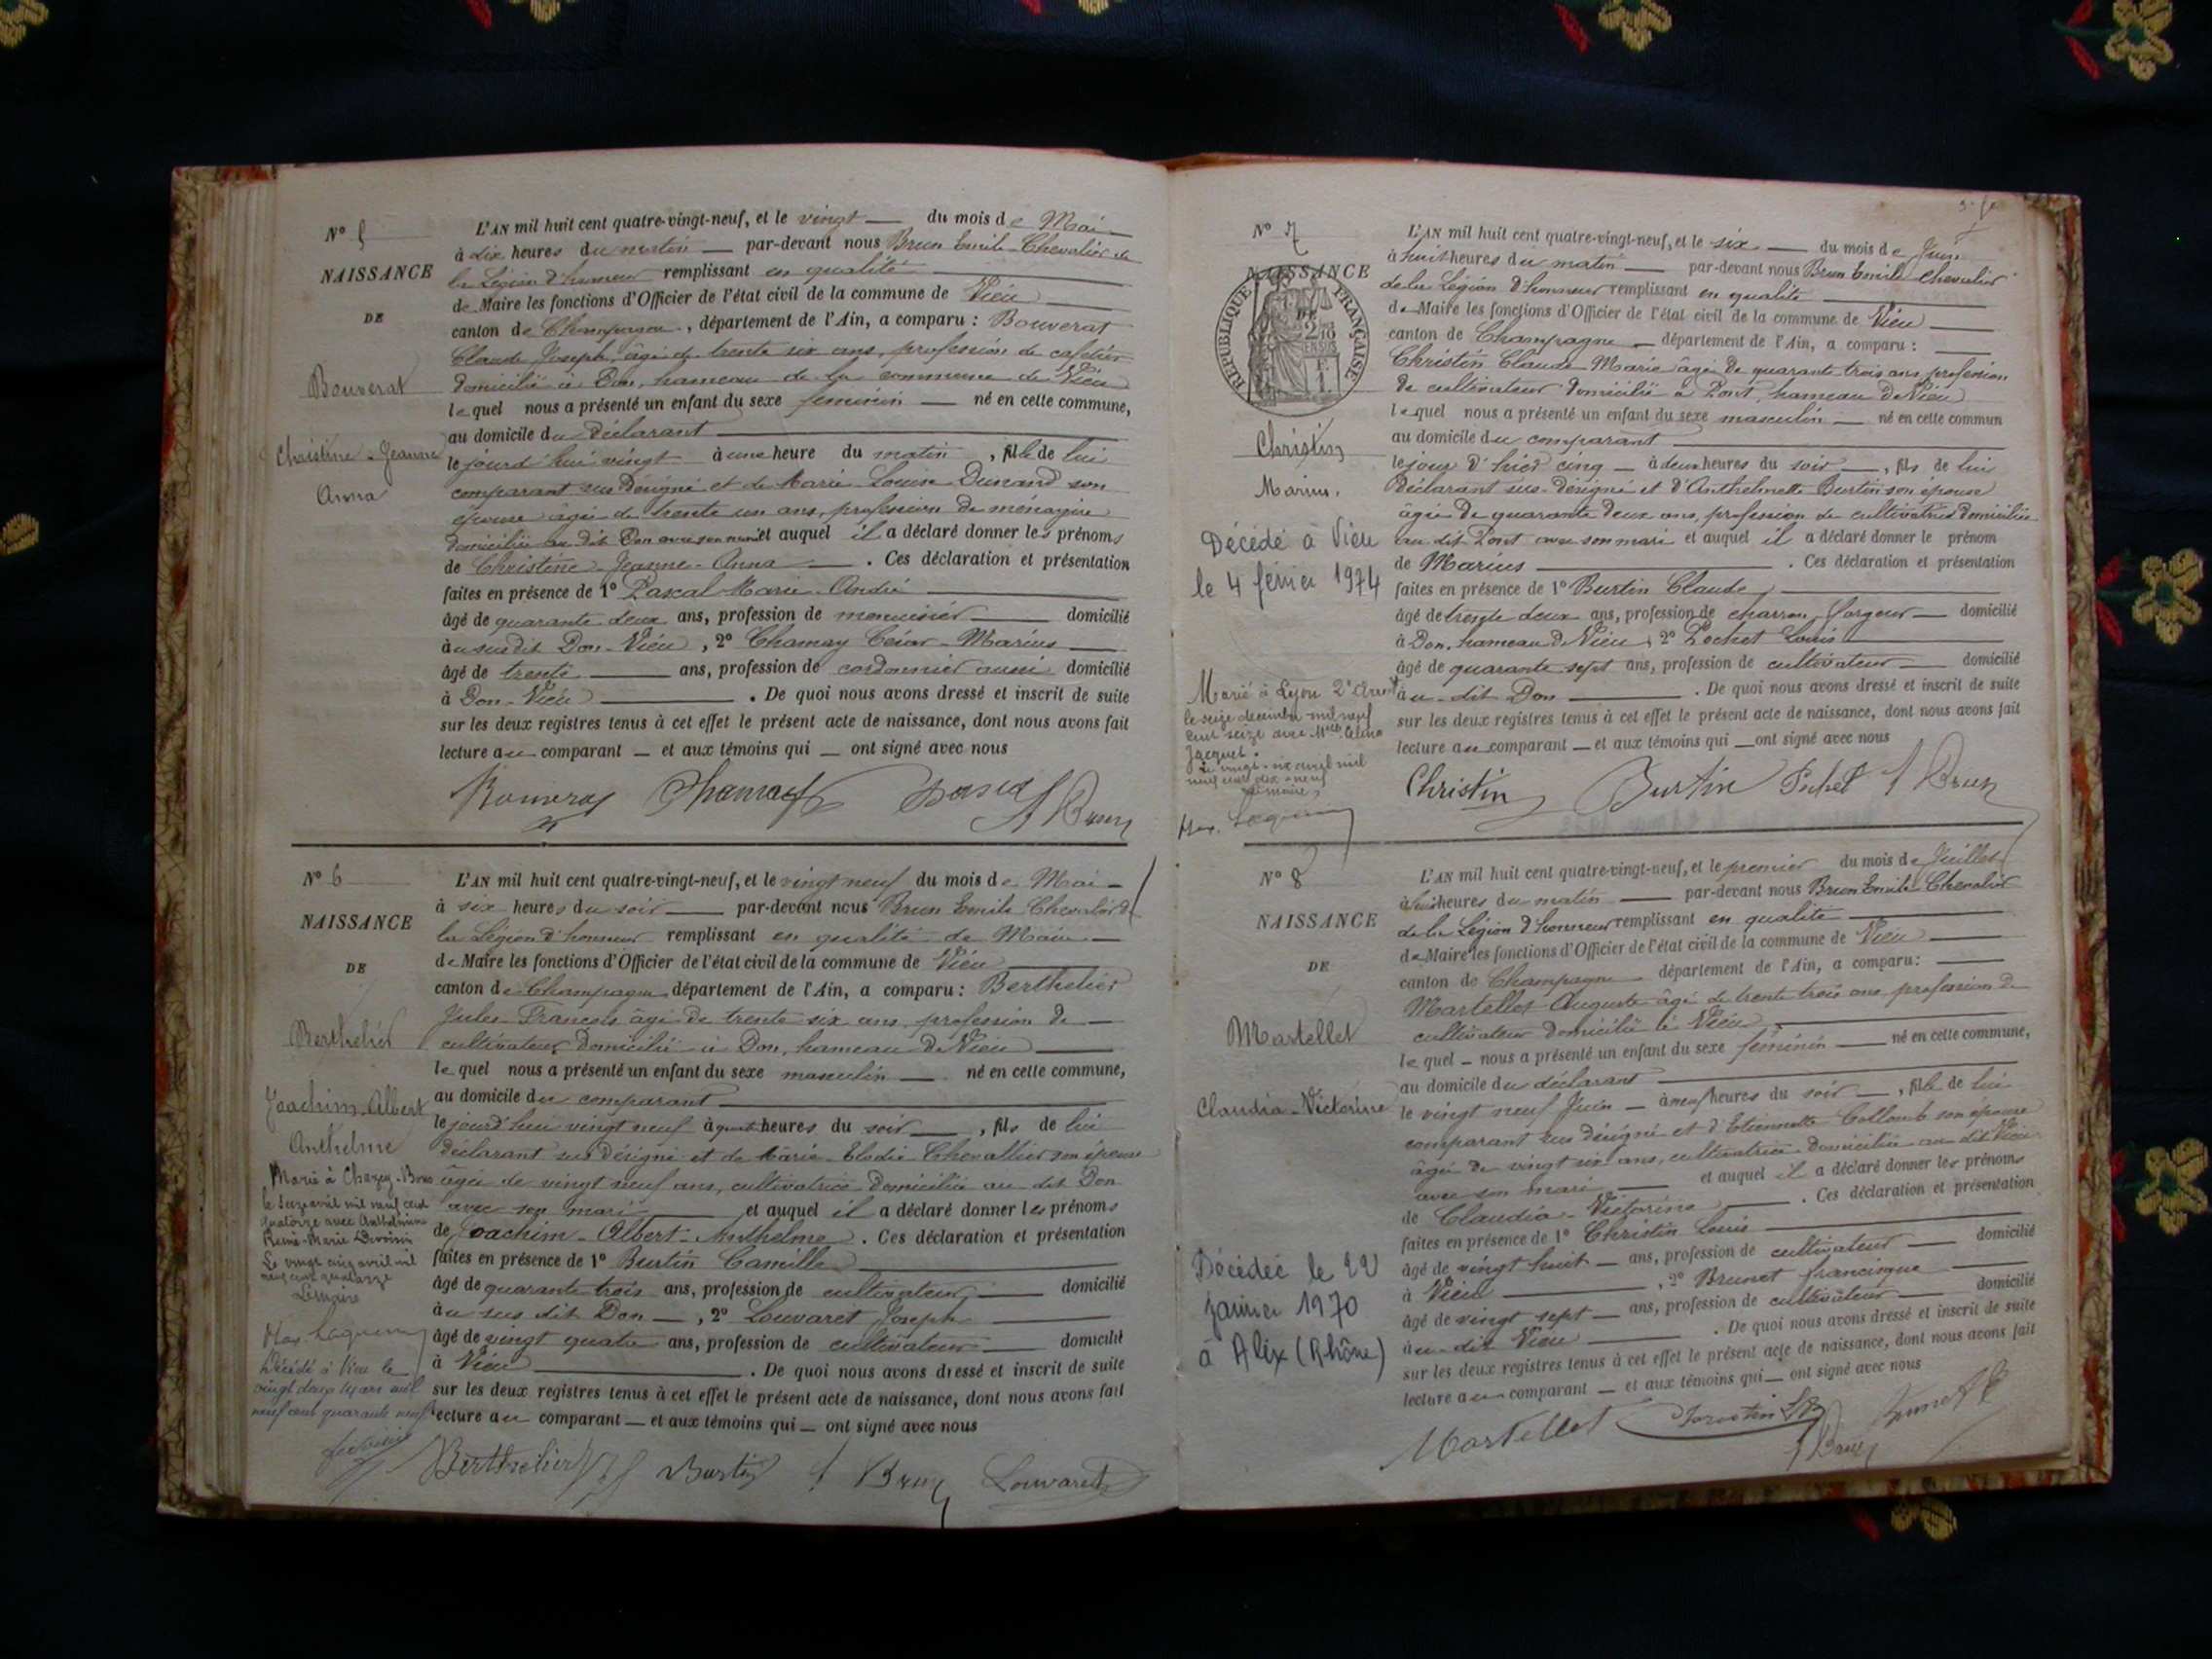 N° 5
NAISSANCE
DE
Bouverat
Christine-Jeanne
Anna
L'AN mil huit cent quatre-vingt-neuf, et le vingt — du mois de Mai
à dix heures du matin — par-devant nous Brun Emile Chevalier de
la Légion d'honneur remplissant en qualité
de Maire les fonctions d'Officier de l'état civil de la commune de Vieu
canton de Champagne, département de l'Ain, a comparu : Bouverat
Claude Joseph, âgé de trente six ans, profession de cafetier
domicilié à Don, hameau de la commune de Vieu
lequel nous a présenté un enfant du sexe féminin — né en cette commune,
au domicile du déclarant
le jourd'hui vingt à une heure du matin, fille de lui
comparant sus désigné et de Marie Louise Dunand son
épouse âgée de trente un ans, profession de ménagère
domiciliée au dit Don avec son mari et auquel il a déclaré donner les prénoms
de Christine Jeanne-Anna — . Ces déclaration et présentation
faites en présence de 1° Pascal Marie-André
âgé de quarante deux ans, profession de menuisier — domicilié
à susdit Don-Vieu, 2° Chamay César-Marius
âgé de trente — ans, profession de cordonnier aussi domicilié
à Don-Vieu — . De quoi nous avons dressé et inscrit de suite
sur les deux registres tenus à cet effet le présent acte de naissance, dont nous avons fait
lecture au comparant — et aux témoins qui — ont signé avec nous
Bouverat Chamay Brun
N° 6
NAISSANCE
DE
Berthelier
Joachim-Albert
Anthelme
Marié à Chazey-Bons
le seize avril mil neuf cent
quatorze avec
Le vingt cinq avril mil
neuf cent quatorze
Le maire
Décédé à Vieu le
vingt deux Mars mil
neuf cent quarante neuf
L'AN mil huit cent quatre-vingt-neuf, et le vingt neuf du mois de Mai —
à six heures du soir — par-devant nous Brun Emile Chevalier de
la Légion d'honneur remplissant en qualité de Maire —
de Maire les fonctions d'Officier de l'état civil de la commune de Vieu
canton de Champagne département de l'Ain, a comparu : Berthelier
Jules-François âgé de trente six ans, profession de —
cultivateur, domicilié à Don, hameau de Vieu
lequel nous a présenté un enfant du sexe masculin — né en cette commune,
au domicile du comparant
le jourd'hui vingt neuf à quatre heures du soir — , fils de lui
déclarant sus désigné et de Marie-Elodie Chevallier son épouse
âgée de vingt neuf ans, cultivatrice domiciliée au dit Don
avec son mari — et auquel il a déclaré donner les prénoms
de Joachim-Albert-Anthelme. Ces déclaration et présentation
faites en présence de 1° Burtin Camille
âgé de quarante trois ans, profession de cultivateur — domicilié
au sus dit Don —, 2° Louvaret Joseph
âgé de vingt quatre ans, profession de cultivateur — domicilié
à Vieu — . De quoi nous avons dressé et inscrit de suite
sur les deux registres tenus à cet effet le présent acte de naissance, dont nous avons fait
lecture au comparant — et aux témoins qui — ont signé avec nous
Berthelier Burtin Brun Louvaret
N° 7
NAISSANCE
DE
RÉPUBLIQUE FRANÇAISE
Christin
Marius.
Décédé à Vieu
le 4 février 1974
Marié à Lyon 2e Arrondt
le seize décembre mil neuf
cent seize avec Melle
Jacquet.
Le vingt-six avril mil
neuf cent dix-neuf
Le maire,
L'AN mil huit cent quatre-vingt-neuf, et le six — du mois de Juin
à huit heures du matin — par-devant nous Brun Emile Chevalier
de la Légion d'honneur remplissant en qualité
de Maire les fonctions d'Officier de l'état civil de la commune de Vieu
canton de Champagne — département de l'Ain, a comparu :
Christin Claude-Marie âgé de quarante trois ans profession
de cultivateur domicilié à Pont, hameau de Vieu
lequel nous a présenté un enfant du sexe masculin — né en cette commun
au domicile du comparant
le jour d'hier cinq — à deux heures du soir —, fils de lui
déclarant sus-désigné et d'Anthelmette Burtin son épouse
âgée de quarante deux ans, profession de cultivatrice domiciliée
au dit Pont avec son mari et auquel il a déclaré donner le prénom
de Marius — . Ces déclaration et présentation
faites en présence de 1° Burtin Claude
âgé de trente deux ans, profession de charron forgeur — domicilié
à Don, hameau de Vieu, 2° Pochet Louis
âgé de quarante sept ans, profession de cultivateur — domicilié
au dit Don — . De quoi nous avons dressé et inscrit de suite
sur les deux registres tenus à cet effet le présent acte de naissance, dont nous avons fait
lecture au comparant — et aux témoins qui — ont signé avec nous
Christin Burtin Pochet Brun
N° 8
NAISSANCE
DE
Martellet
Claudia-Victorine
Décédée le 22
janvier 1970
à Alix (Rhône)
L'AN mil huit cent quatre-vingt-neuf, et le premier du mois de Juillet
à huit heures du matin — par-devant nous Brun Emile Chevalier
de la Légion d'honneur remplissant en qualité
de Maire les fonctions d'Officier de l'état civil de la commune de Vieu
canton de Champagne département de l'Ain, a comparu :
Martellet Auguste âgé de trente trois ans profession de
cultivateur domicilié à Vieu
lequel — nous a présenté un enfant du sexe féminin — né en cette commune,
au domicile du déclarant
le vingt neuf Juin — à neuf heures du soir —, fille de lui
comparant sus désigné et d'Etiennette Collomb son épouse
âgée de vingt six ans, cultivatrice domiciliée au dit Vieu
avec son mari — et auquel il a déclaré donner les prénoms
de Claudia-Victorine — . Ces déclaration et présentation
faites en présence de 1° Christin Louis
âgé de vingt huit — ans, profession de cultivateur — domicilié
à Vieu —, 2° Brunet francisque
âgé de vingt sept — ans, profession de cultivateur — domicilié
au dit Vieu — . De quoi nous avons dressé et inscrit de suite
sur les deux registres tenus à cet effet le présent acte de naissance, dont nous avons fait
lecture au comparant — et aux témoins qui — ont signé avec nous
Martellet Brun